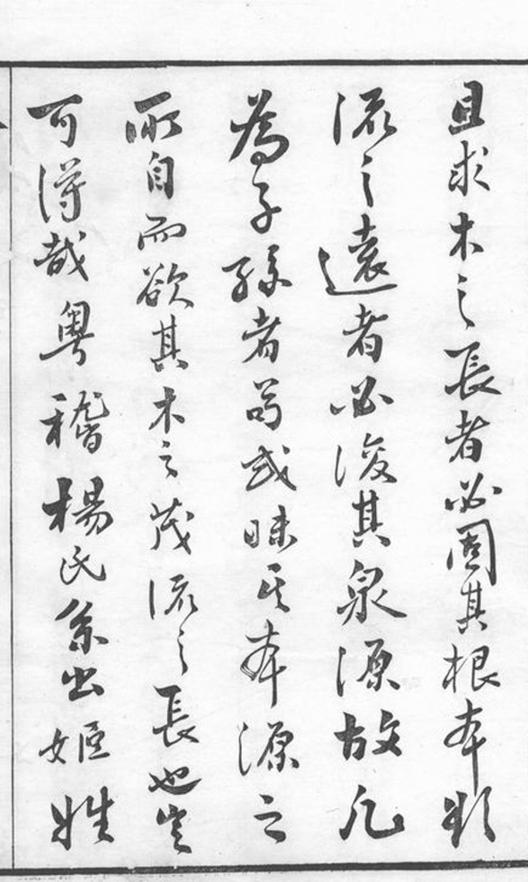 且求木之長者必固其根本欲
流之遠者必浚其泉源故凡
為子孫者苟或昧其本源之
所自而欲其木之茂流之長也豈
可得哉粵稽楊氏系出姬姓